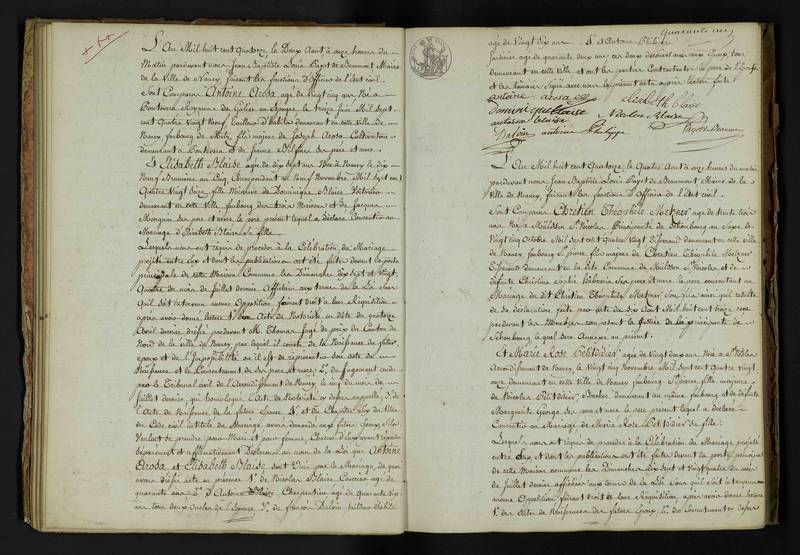 L'An Mil huit cent Quatorze, le Deux Aout à onze heures du
Matin pardevant nous Jean Baptiste Louis Payot de Beaumont Maire
de la Ville de Nancy, faisant les fonctions d'Officier de l'Etat civil.
Sont Comparus Antoine Arosa agé de Vingt cinq ans Né à
Royaume de Galice en Espagne, le treize Juin Mil Sept
cent Quatre Vingt Neuf, Tailleur d'habits demeurant en cette Ville de
Nancy faubourg de Metz, fils majeur de Joseph Arosa Cultivateur
demeurant à et de ses père et mère.
Et Elisabeth Blaise agée de dix sept ans Née à Nancy le dix
Neuf Brumaire an Cinq Correspondant au Neuf Novembre Mil Sept cent
Quatre Vingt Seize fille Mineure de Dominique Blaise
demeurant en cette Ville faubourg des trois Maisons et de
ses père et mère, le père présent lequel a déclaré Consentir au
Mariage d'Elisabeth Blaise Sa fille.
Lesquels nous ont requis de procéder à la Célébration du Mariage
projetté entre Eux et dont les publications ont été faites devant la porte
principale de cette Maison Commune les Dimanches dix Sept et Vingt
Quatre du mois de Juillet dernier Affichées aux termes de la Loi Sans
qu'il soit intervenu aucune Opposition faisant droit à leur Réquisition
après avoir donné lecture 1° d'un Acte de Notoriété en date du quatorze
Avril dernier dressé pardevant M. Thomas Juge de paix du Canton de
Nord de la Ville de Nancy par lequel il conste de la Naissance du futur
epoux et de l'Impossibilité où il est de représenter son acte de
Naissance et le Consentement de ses père et mère 2° du Jugement rendu
par le Tribunal civil de l'Arrondissement de Nancy le cinq du mois de
Juillet dernier, qui homologue l'Acte de Notoriété ci devant rappellé, 3° de
l'Acte de Naissance de la future Epouse 4° et du Chapitre Six du titre
du Code civil intitulé du Mariage, avons demandé aux futurs Epoux s'ils
Veulent se prendre pour Mari et pour femme, Chacun d'eux ayant répondu
séparément et affirmativement Déclarons au nom de la Loi que Antoine
Arosa et Elisabeth Blaise sont Unis par le Mariage, de quoi
avons dressé acte en présence 1° de Nicolas Blaise agé de
quarante ans 2° d'Antoine Blaise Charpentier agé de Quarante dix
ans tous deux Oncles de l'Epouse 3° de François Dalvin
Quarante cinq
agé de Vingt dix ans 4° et Antoine Philippe
Jardinier agé de quarante deux ans ces deux derniers amis aux Epoux tous
demeurant en cette Ville et ont les parties Contractantes le père de l'Epouse
et les témoins Signé avec nous le présent acte après lecture faite
antoine arosa
Elisabeth Blaise
Domini que blaise
Nicolas Blaise
antoine blaise
Dalvin
antoine Philippe
Payot Beaumont
L'An Mil huit cent Quatorze, le Quatre Aout à onze heures du matin
pardevant nous Jean Baptiste Louis Payot de Beaumont Maire de la
Ville de Nancy, faisant les fonctions d'Officier de l'Etat civil.
Sont Comparus Chretien Theophile Metzner agé de trente trois
ans Né à Mullsen St Nicolas Principauté de Schoenbourg en Saxe le
Vingt cinq Octobre Mil Sept cent Quatre Vingt Tisserand demeurant en cette Ville
de Nancy faubourg St pierre fils majeur de Chretien Theophile Metzner
Tisserand demeurant en la dite Commune de Mullsen St Nicolas et de
défunte Christine Sophie ses père et mère, le père consentant au
Mariage du dit Chretien Theophile Metzner Son fils ainsi qu'il résulte
de sa déclaration faite par acte du dix Aout Mil huit cent treize reçu
pardevant les Membres composant la Justice de la principauté de
Schoenbourg lequel sera Annexé au présent.
Et Marie Rose Petitdidier, agée de Vingt deux ans Née à St Nicolas
Arrondissement de Nancy, le Vingt cinq Novembre Mil Sept cent Quatre Vingt
onze demeurant en cette Ville de Nancy faubourg St pierre, fille majeure
de Nicolas Petitdidier demeurant au même faubourg et de défunte
Marguerite George ses père et mère, le père présent lequel a déclaré
Consentir au Mariage de Marie Rose Petitdidier sa fille.
Lesquels nous ont requis de procéder à la Célébration du Mariage projetté
entre Eux et dont les publications ont été faites devant la porte principale
de cette Maison commune les Dimanches dix Sept et Vingt quatre du mois
de Juillet dernier affichées aux termes de la Loi sans qu'il soit intervenu
aucune Opposition faisant droit à leur Réquisition, après avoir donné lecture
1° des Actes de Naissances des futurs Epoux 2° du Consentement ci dessus